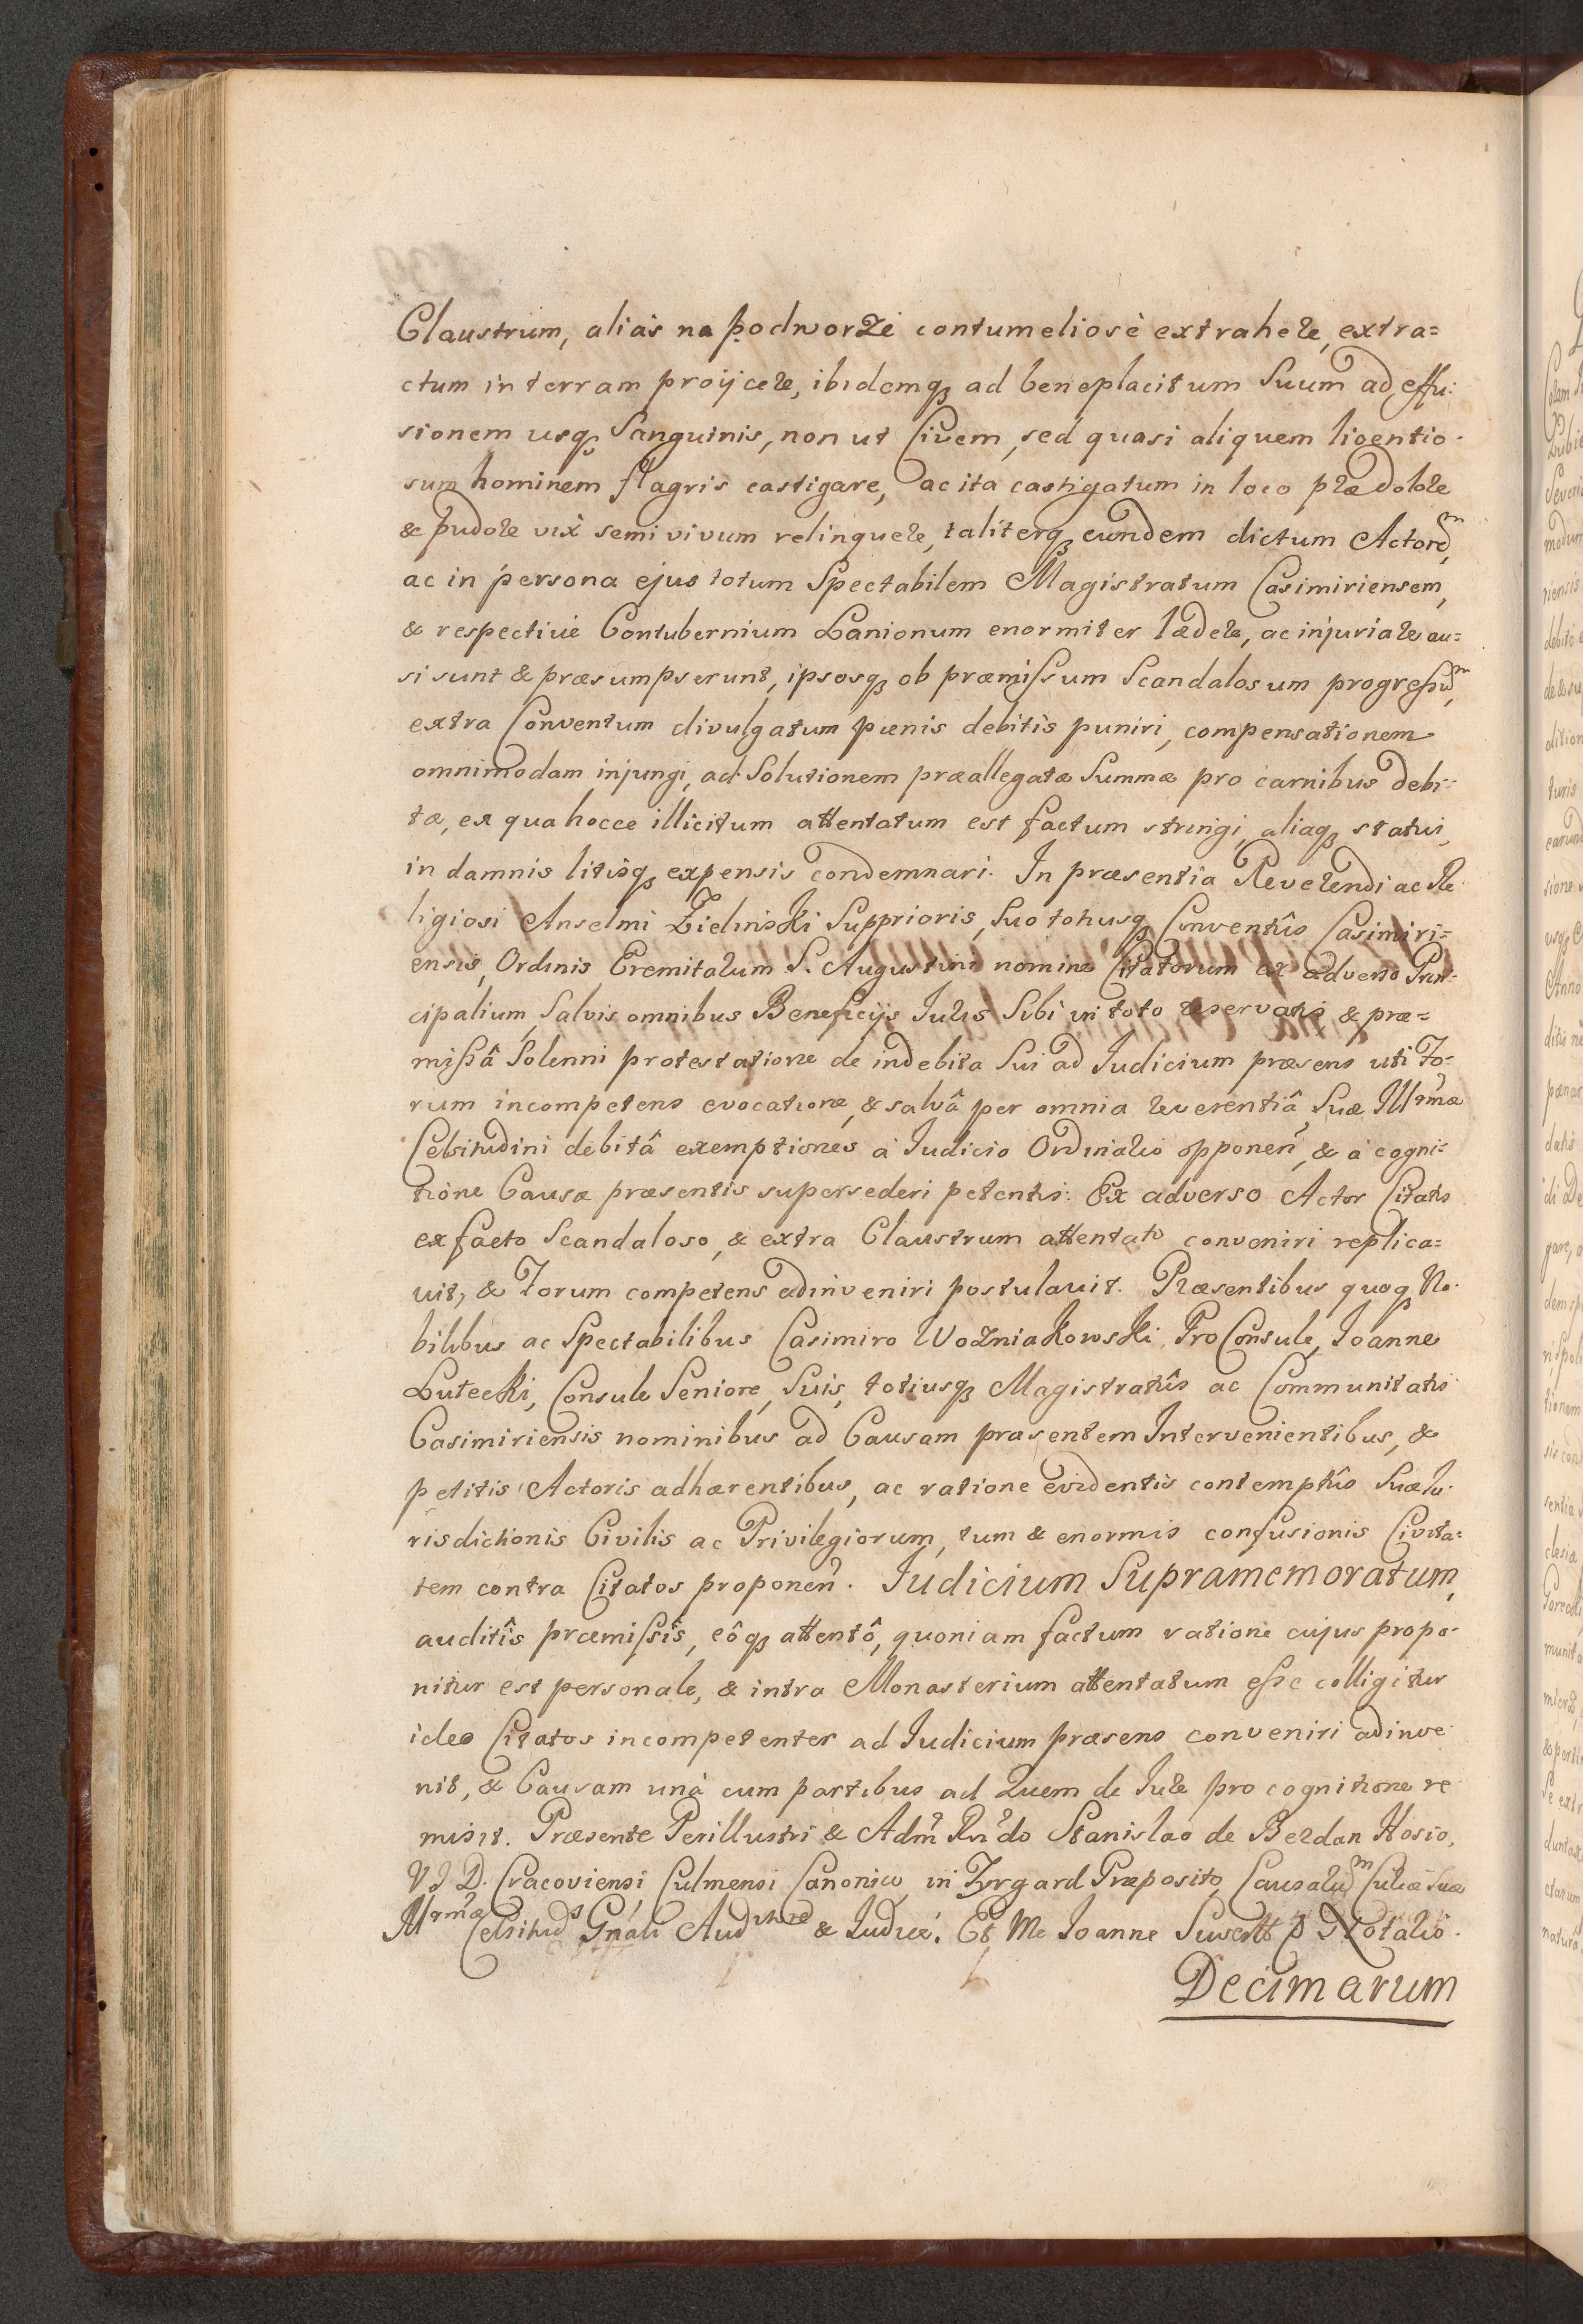 Claustrum, aliàs na podworze contumeliosè extrahere, extra=
ctum in terram proijcere, ibidemq; ad beneplacitum Suum ad effu:
sionem usq; Sanguinis, non ut Civem, sed quasi aliquem licentio-
sum hominem flagris castigare, ac ita castigatum in loco præ dolore
& pudore vix semivivum relinquere, taliterq; eundem dictum Actorem,
ac in persona ejus totum Spectabilem Magistratum Casimiriensem,
& respectivè Contubernium Lanionum enormiter lædere, ac injuriare au=
si sunt & præsumpserunt, ipsosq; ob præmissum Scandalosum progressum,
extra Conventum divulgatum pænis debitis puniri, compensationem
omnimodam injungi, ad Solutionem præallegatæ Summæ pro carnibus debi=
tæ, ex qua hocce illicitum attentatum est factum stringi, aliaq; statui,
in damnis litisq; expensis condemnari. In præsentia Reverendi ac Re
ligiosi Anselmi Zielinski Supprioris, Suo totiusq; Conventûs Casimiri=
ensis, Ordinis Eremitarum S. Augustini nomine Citatorum ex adverso Prin-
cipalium, Salvis omnibus Beneficijs Juris Sibi in toto reservatis & præ=
missâ Solenni protestatione de indebita Sui ad Judicium præsens uti Fo-
rum incompetens evocatione, & salvâ per omnia reverentiâ Suæ Illrmæ
Celsitudini debitâ exemptiones à Judicio Ordinario opponen, & à cogni=
tione Causæ præsentis supersederi petentis. Ex adverso Actor Citatos
ex facto Scandaloso, & extra Claustrum attentato conveniri replica=
vit, & Forum competens adinveniri postulavit. Præsentibus quoq; No-
bilibus ac Spectabilibus Casimiro Wozniakowski ProConsule, Joanne
Lutecki, Consule Seniore, Suis, totiusq; Magistratûs ac Communitatis
Casimiriensis nominibus ad Causam præsentem Intervenientibus, &
petitis Actoris adhærentibus, ac ratione evidentis contemptûs Suæ Ju-
risdictionis Civilis ac Privilegiorum, tum & enormis confusionis Civita=
tem contra Citatos proponen. Judicium Supramemoratum,
auditîs præmissîs, eôq; attentô, quoniam factum ratione cujus propo-
nitur est personale, & intra Monasterium attentatum esse colligitur
ideo Citatos incompetenter ad Judicium præsens conveniri adinve
nit, & Causam unà cum partibus ad Quem de Jure pro cognitione re
misit. Præsente Perillustri & Adm Rndo Stanislao de Bezdan Hosio,
V J D. Cracoviensi, Culmensi Canonico, in Zyrgard Præposito, Causarum Curiæ Suæ
Illrmæ Celsituds Gnali Auditore & Judice. Et Me Joanne Notario
Decimarum